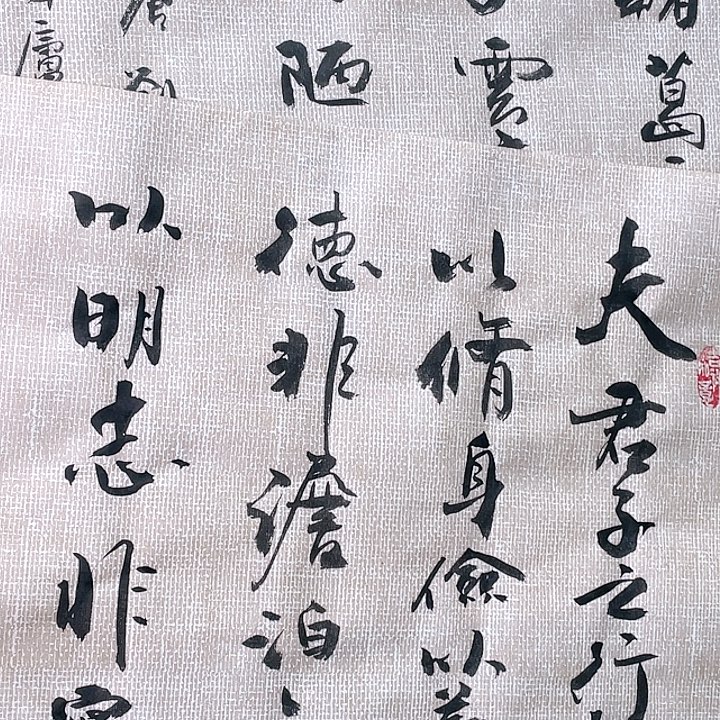 夫君子之行
以脩身儉以養
德非澹泊
以明志非寧
葛
雲
陋
廬